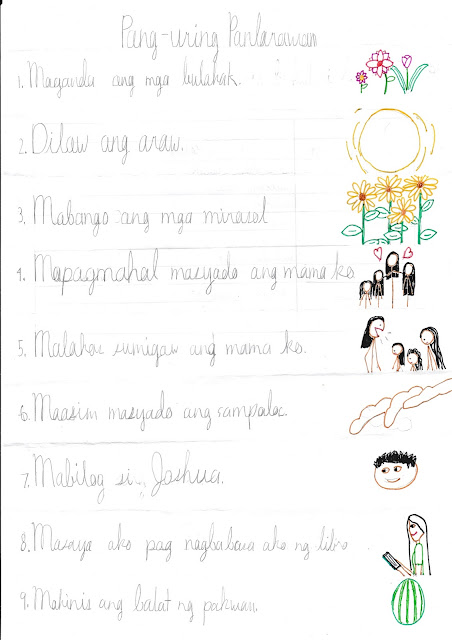 Pang-uring Panlarawan
1. Maganda ang mga bulaklak.
2. Dilaw ang araw.
3. Mabango ang mga mirasol
4. Mapagmahal masyado ang mama ko
5. Malakas sumigaw ang mama ko.
6. Maasim masyado ang sampaloc.
7. Mabilog si Joshua.
8. Masaya ako pag nagbabasa ako ng libro
9. Makinis ang balat ng pakwan.